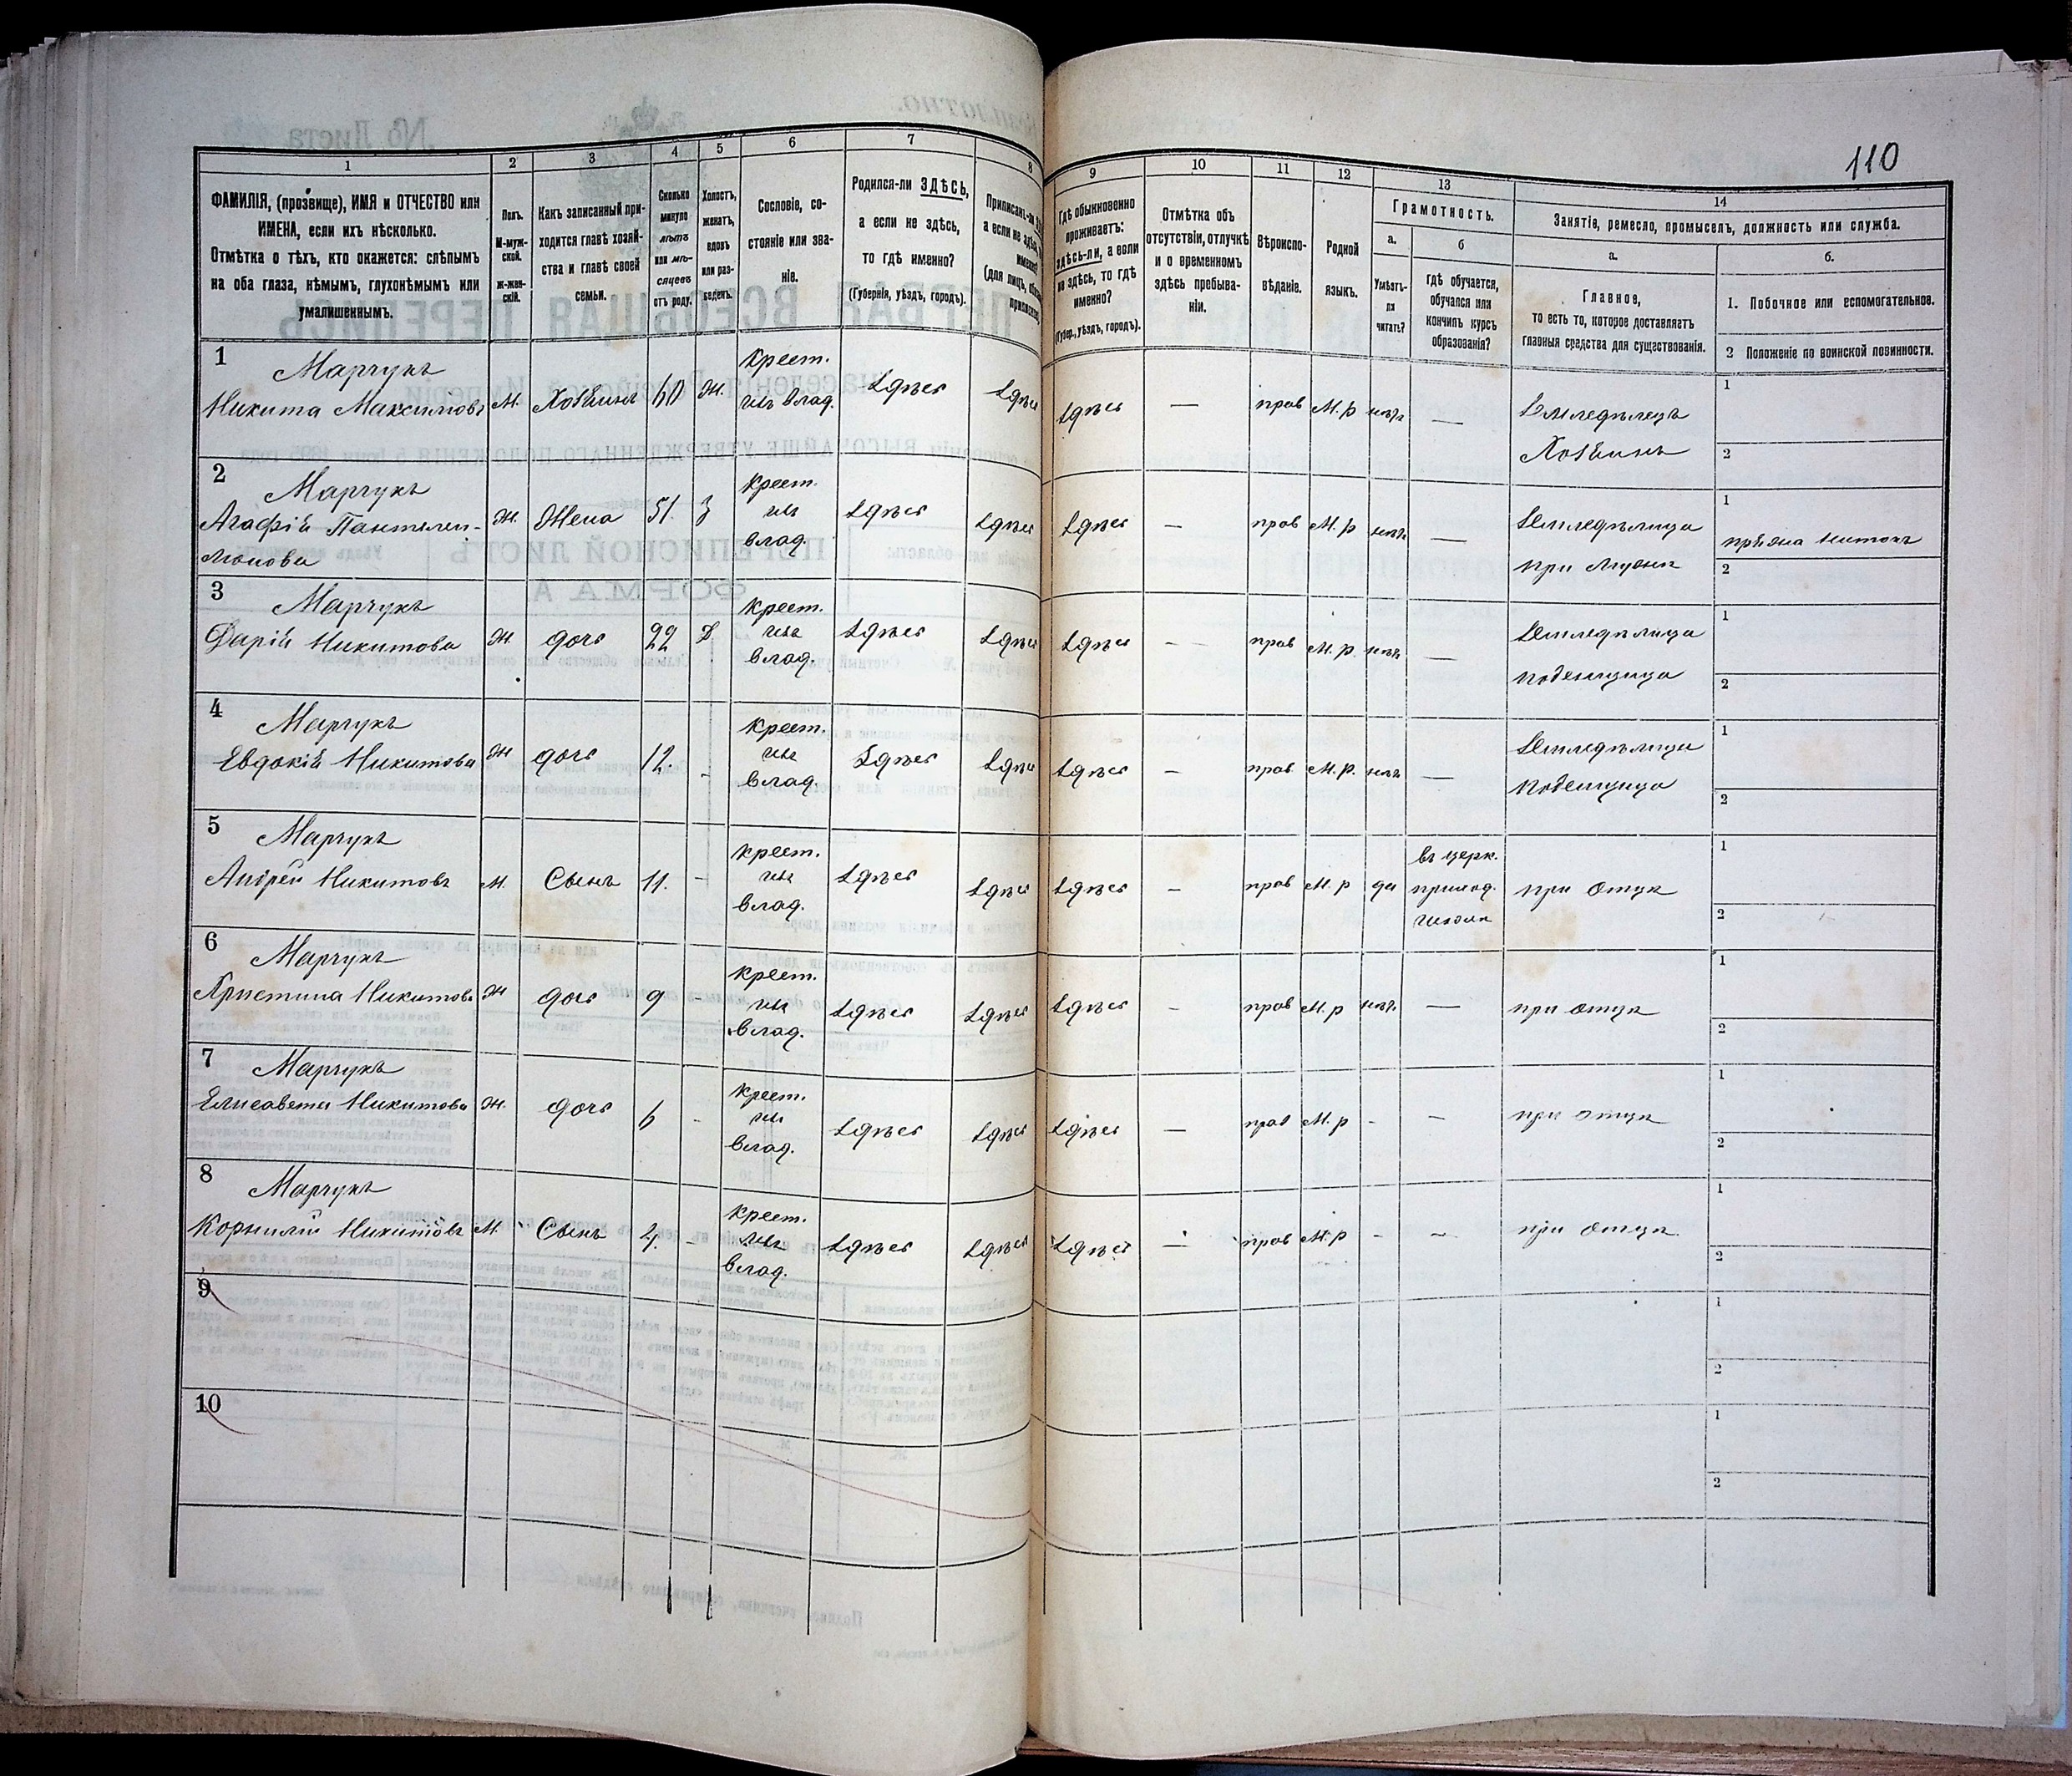 110
1
2
3
4
5
6
7
8
9
10
11
12
13
14
ФАМИЛІЯ, (прозвище), ИМЯ и ОТЧЕСТВО или
ИМЕНА, если ихъ нѣсколько.
Отмѣтка о тѣхъ, кто окажется: слѣпымъ
на оба глаза, нѣмымъ, глухонѣмымъ или
умалишеннымъ.
Полъ.
М-муж-
ской.
ж-жен-
скій.
Какъ записанный при-
ходится главѣ хозяй-
ства и главѣ своей
семьи.
Сколько
минуло
лѣтъ
или мѣ-
сяцевъ
отъ роду.
Холостъ,
женатъ,
вдовъ
или раз-
веденъ.
Сословіе, со-
стояніе или зва-
ніе.
Родился-ли ЗДѢСЬ,
а если не здѣсь,
то гдѣ именно?
(Губернія, уѣздъ, городъ).
Приписанъ-ли
а если не здѣсь,
(для лицъ,
Гдѣ обыкновенно
проживаетъ:
здѣсь-ли, а если
не здѣсь, то гдѣ
именно?
(Губер., уѣздъ, городъ).
Отмѣтка объ
отсутствіи, отлучкѣ
и о временномъ
здѣсь пребыва-
ніи.
Вѣроиспо-
вѣданіе.
Родной
языкъ.
Грамотность.
а.
б
Умѣетъ-
ли
читать?
Гдѣ обучается,
обучался или
кончилъ курсъ
образованія?
Занятіе, ремесло, промыселъ, должность или служба.
а.
б.
Главное,
то есть то, которое доставляетъ
главныя средства для существованія.
1. Побочное или вспомогательное.
2 Положеніе по воинской повинности.
1 Марчукъ
Никита Максимовъ М. Хозяинъ 60 Ж. Крест. изъ влад. здѣсь здѣсь здѣсь — прав М.р нѣтъ — Земледѣлецъ Хозяинъ 1 2
2 Марчукъ
Агафія Пантелеи-
монова Ж. Жена 51. З крест. изъ влад. здѣсь здѣсь здѣсь — прав М.р нѣтъ — Земледѣлица при мужѣ 1 пряжа нитокъ 2
3 Марчукъ
Дарія Никитова Ж. дочь 22 Д. крест. изъ влад. здѣсь здѣсь здѣсь — прав М.р. нѣтъ — Земледѣлица поденщица 1 2
4 Марчукъ
Евдокія Никитова Ж дочь 12. - крест. изъ влад. здѣсь здѣсь здѣсь — прав М.р. нѣтъ — Земледѣлица поденщица 1 2
5 Марчукъ
Андрей Никитовъ М. Сынъ 11. - крест. изъ влад. здѣсь здѣсь здѣсь — прав М.р да въ церк. приход. школѣ при отцѣ 1 2
6 Марчукъ
Христина Никитова Ж дочь 9 - крест. изъ влад. здѣсь здѣсь здѣсь - прав М.р нѣтъ. — при отцѣ 1 2
7 Марчукъ
Елисавета Никитова Ж. дочь 6 - крест. изъ влад. здѣсь здѣсь здѣсь — прав М.р - — при отцѣ 1 2
8 Марчукъ
Корнилій Никитовъ М. Сынъ 4. - крест. изъ влад. здѣсь здѣсь здѣсь — прав М.р - - при отцѣ. 1 2
9 1 2
10 1 2